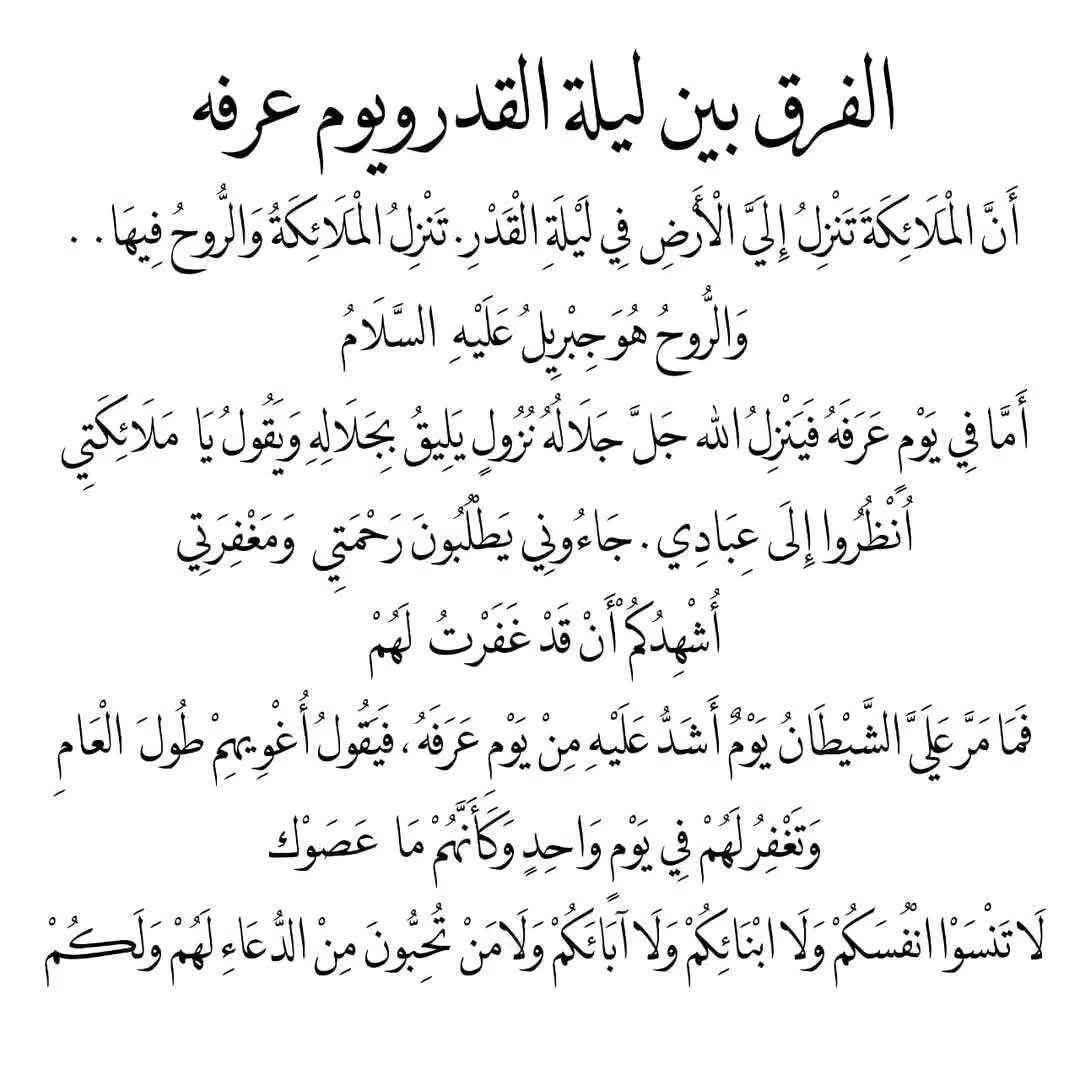 الفرق بين ليلة القدر ويوم عرفه
أَنَّ الْمَلَائِكَةَ تَنْزِلُ إِلَيَّ الْأَرْضِ فِي لَيْلَةِ الْقَدْرِ. تَنْزِلُ الْمَلَائِكَةُ وَالرُّوحُ فِيهَا. .
وَالرُّوحُ هُوَ جِبْرِيِلُ عَلَيْهِ السَّلَامُ
أَمَّا فِي يَوْمِ عَرَفَهُ فَيَنْزِلُ الله جَلَّ جَلَالُهُ نُزُولٍ يَلِيقُ بِجَلَالِهِ وَيَقُولُ يَا مَلَائِكَتِي
اُنْظُرُوا إِلَى عِبَادِي. جَاءُونِي يَطْلُبُونَ رَحْمَتِي وَمَغْفِرَتِي
أُشْهِدُكُمْ أَنْ قَدْ غَفَرْتُ لَهُمْ
فَمَا مَرَّ عَلَيَّ الشَّيْطَانُ يَوْمٌ أَشَدُّ عَلَيْهِ مِنْ يَوْمِ عَرَفَهُ، فَيَقُولُ أُغْوِيهِمْ طُولَ الْعَامِ
وَتَغْفِرُ لَهُمْ فِي يَوْمٍ وَاحِدٍ وَكَأَنَّهُمْ مَا عَصَوْك
لَا تَنْسَوْا انْفُسَكُمْ وَلَا ابْنَائِكُمْ وَلَا آبَائَكُمْ وَلَا مَنْ تُحِبُّونَ مِنْ الدُّعَاءِ لَهُمْ وَلَكُمْ